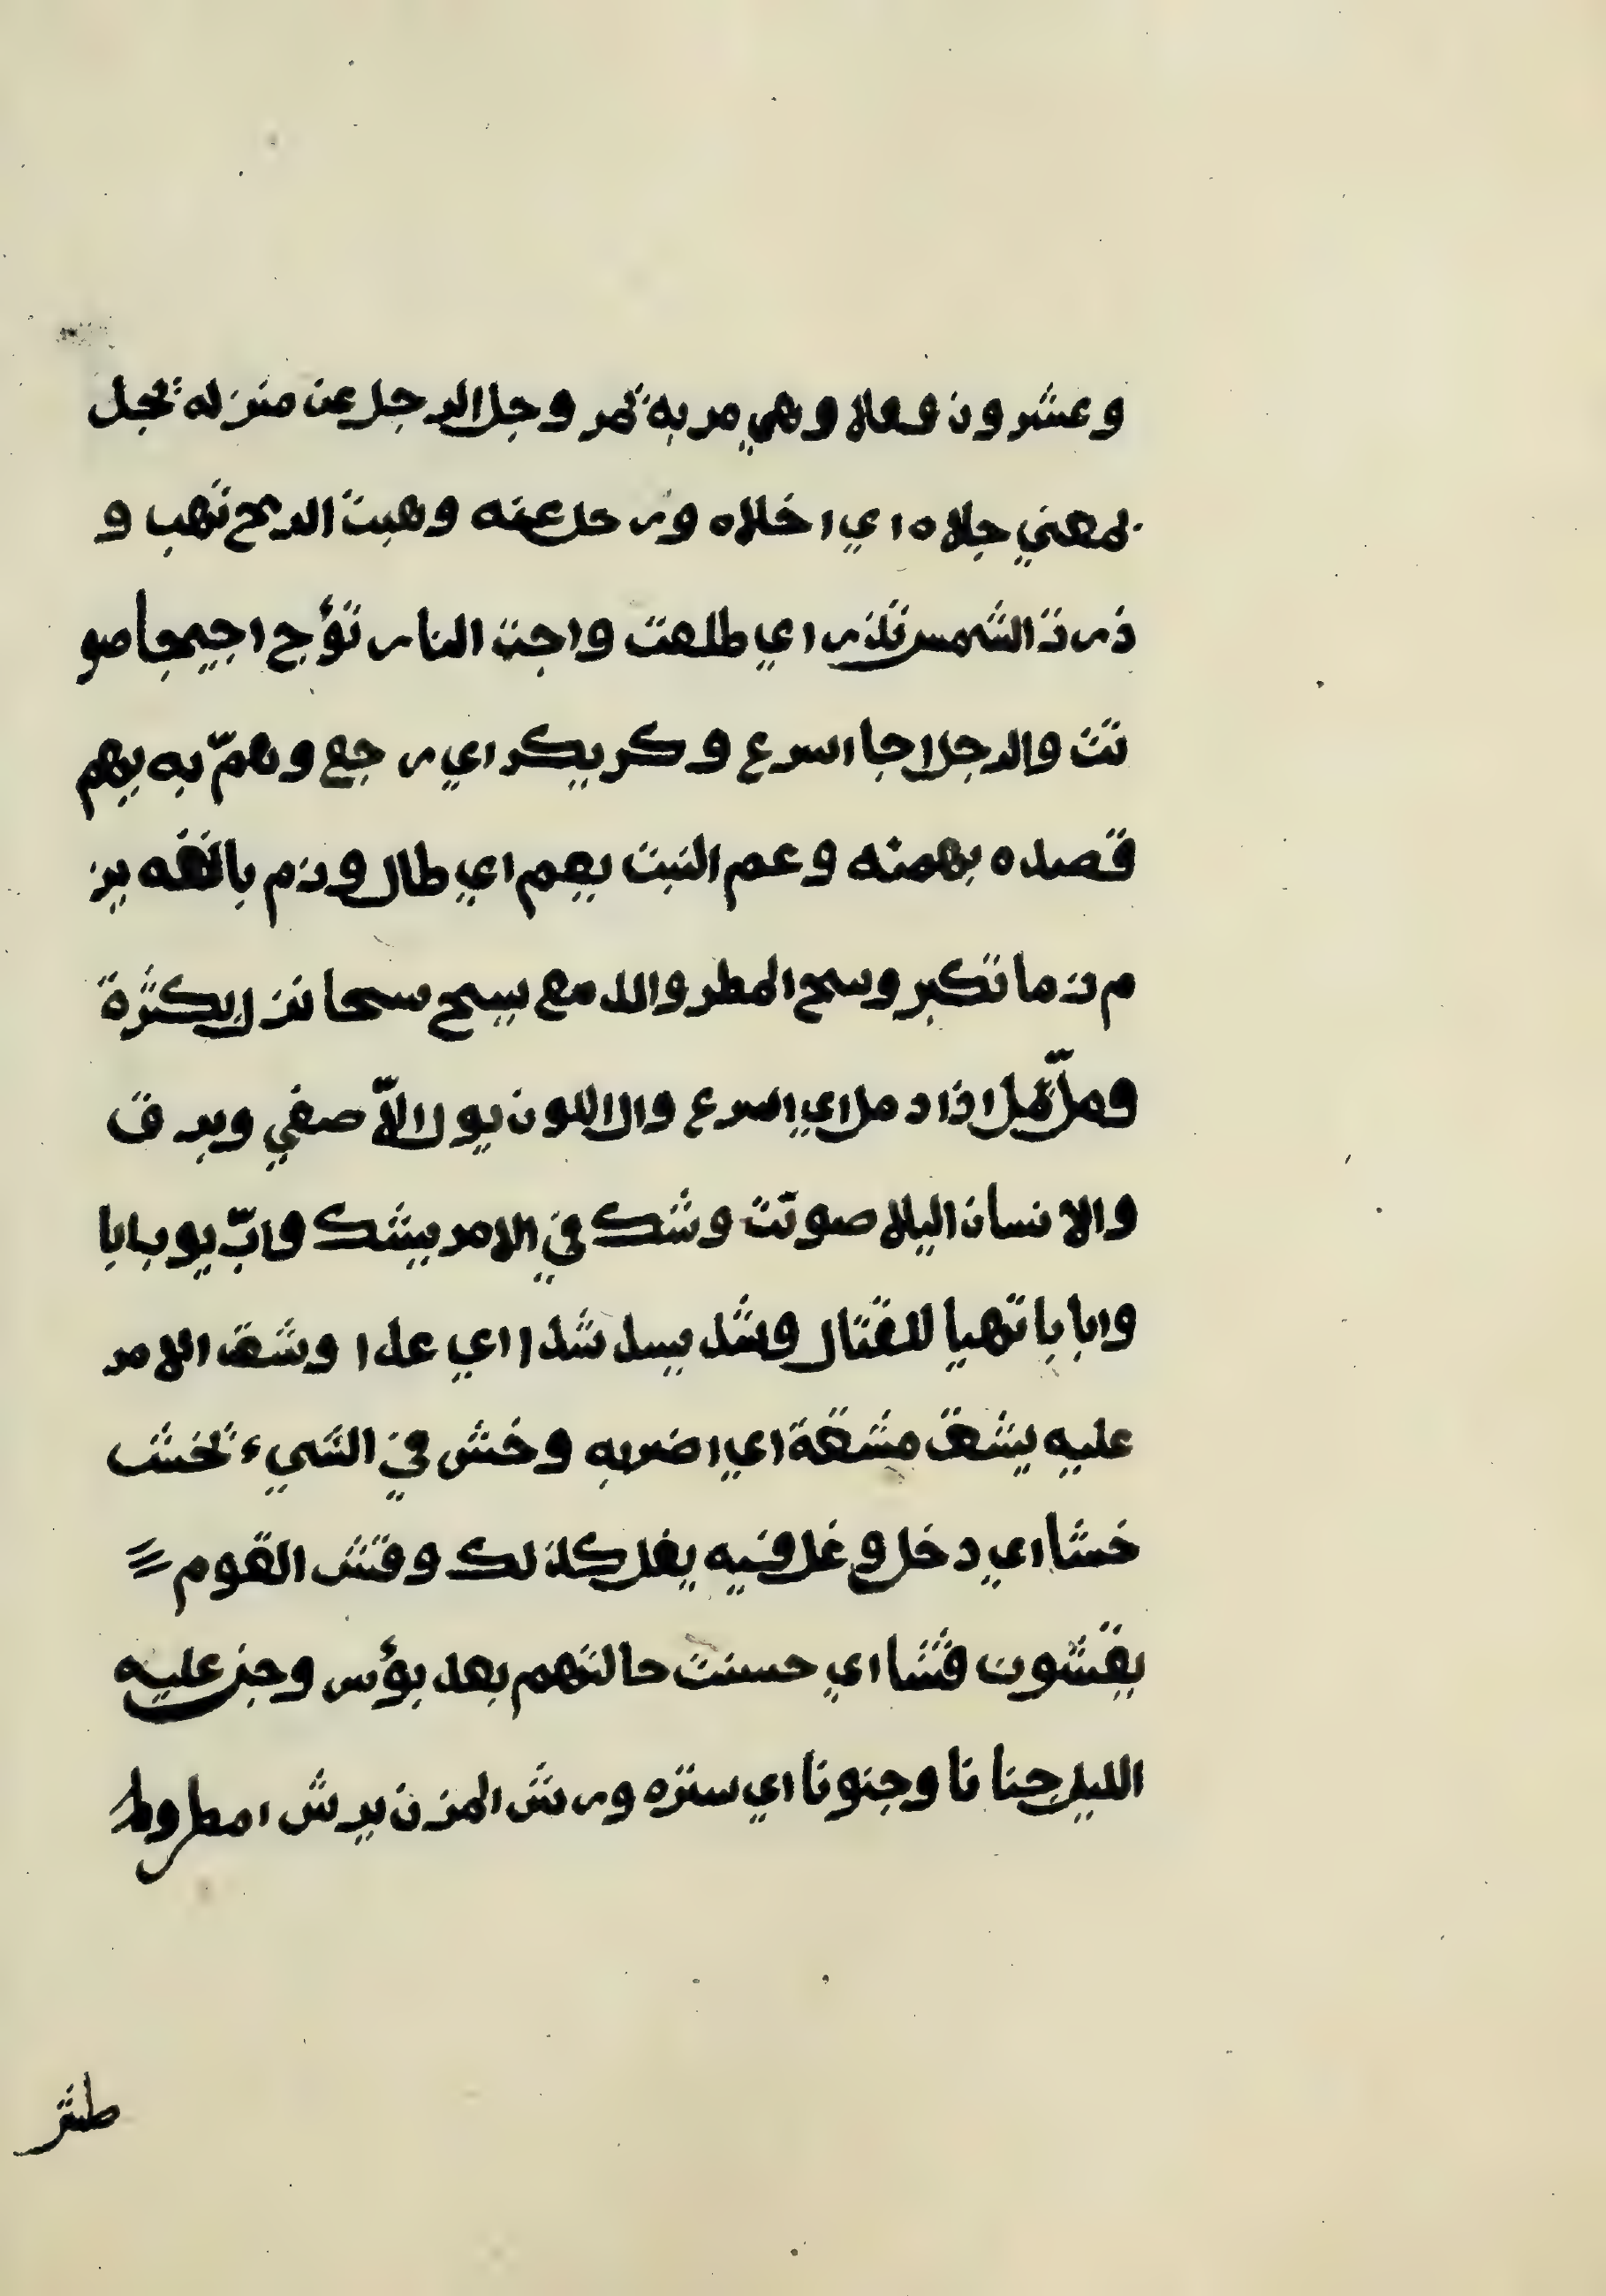 وعشرون فعلا وهي مر به تمر وجل الرجل عن منزله تجل
لمعني جلاه اي اخلاه ورحل عنه وهبت الريح تهب و
ذرت الشمس تذر اي طلعت واجت النار تؤج اجيجا صو
تت والرجل اجا اسرع وكر يكر اي رجع وهمّ به يهم
قصده بهمته وعم النبت يعم اي طال وزم بانفه يز
م زما تكبر وسح المطر والدمع يسح سحا نزل بكثرة
وملّ يمل اذا دمل اي اسرع وال اللون يول الاّ صفي وبرق
والانسان اليلا صوتت وشك في الامر يشك وابّ يوب ابا
وابابا تهيا للقتال وشد يسد شدا اي عدا وشق الامر
عليه يشق مشقة اي اضربه وخش في الشيء تخش
خشا اي دخل وغل فيه يغل كذلك وقش القوم
يقشون قشا اي حسنت حالتهم بعد بؤس وجن عليه
الليل جنانا وجنونا اي ستره ورش المزن يرش امطر وط
طش